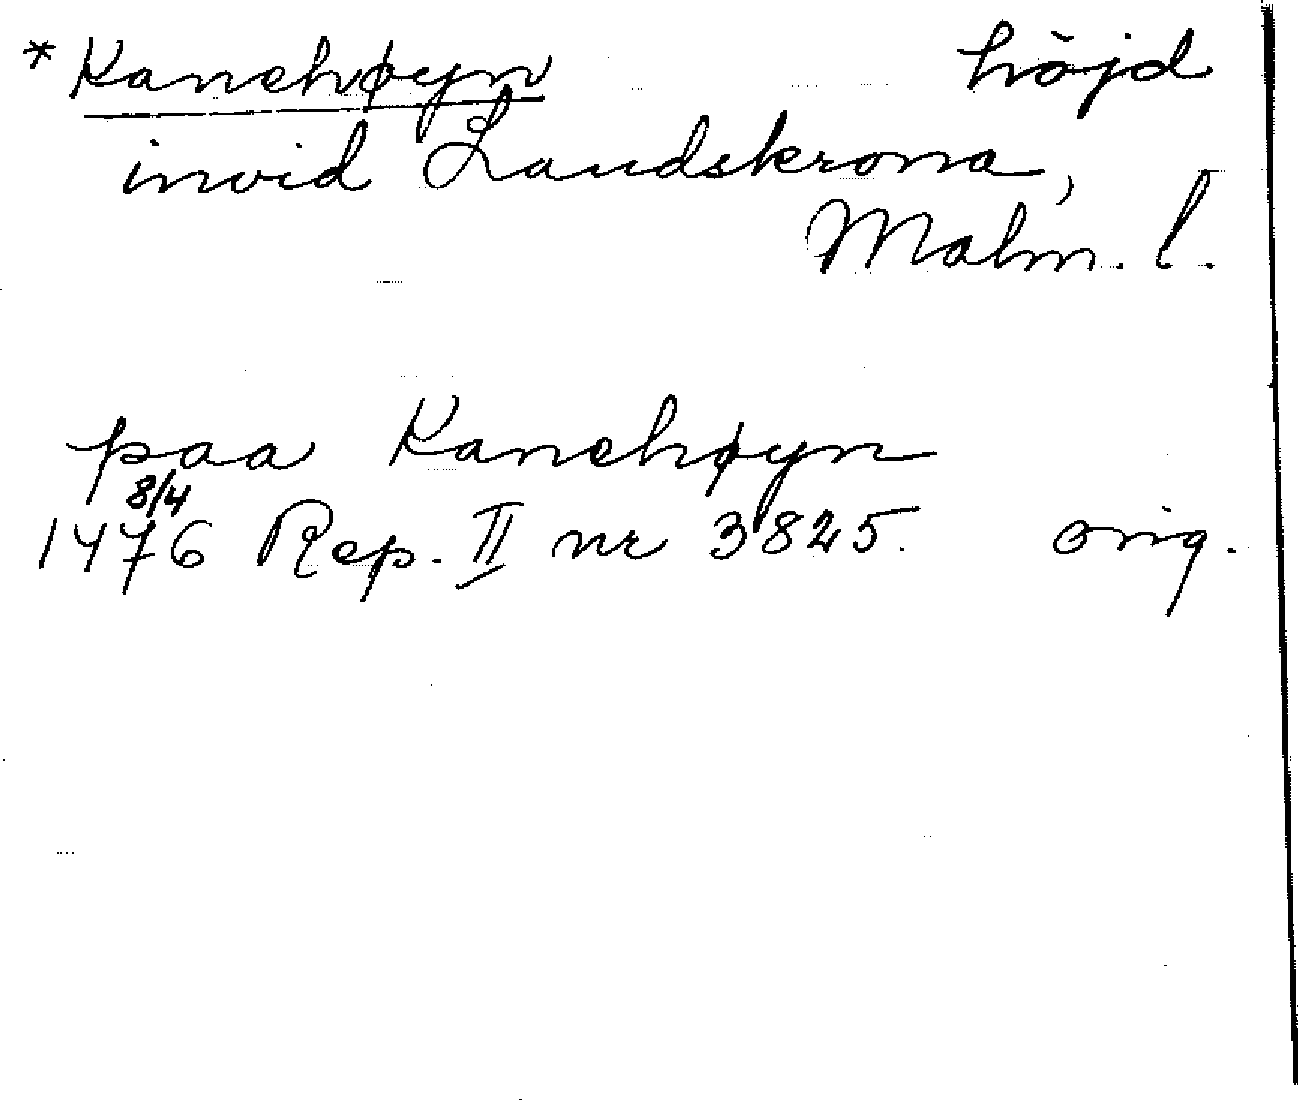 * Kanehøyn höjd
invid Landskrona,
Malm. l.
paa Kanehøyn
8/4
1476 Rep. II nr 3825. orig.